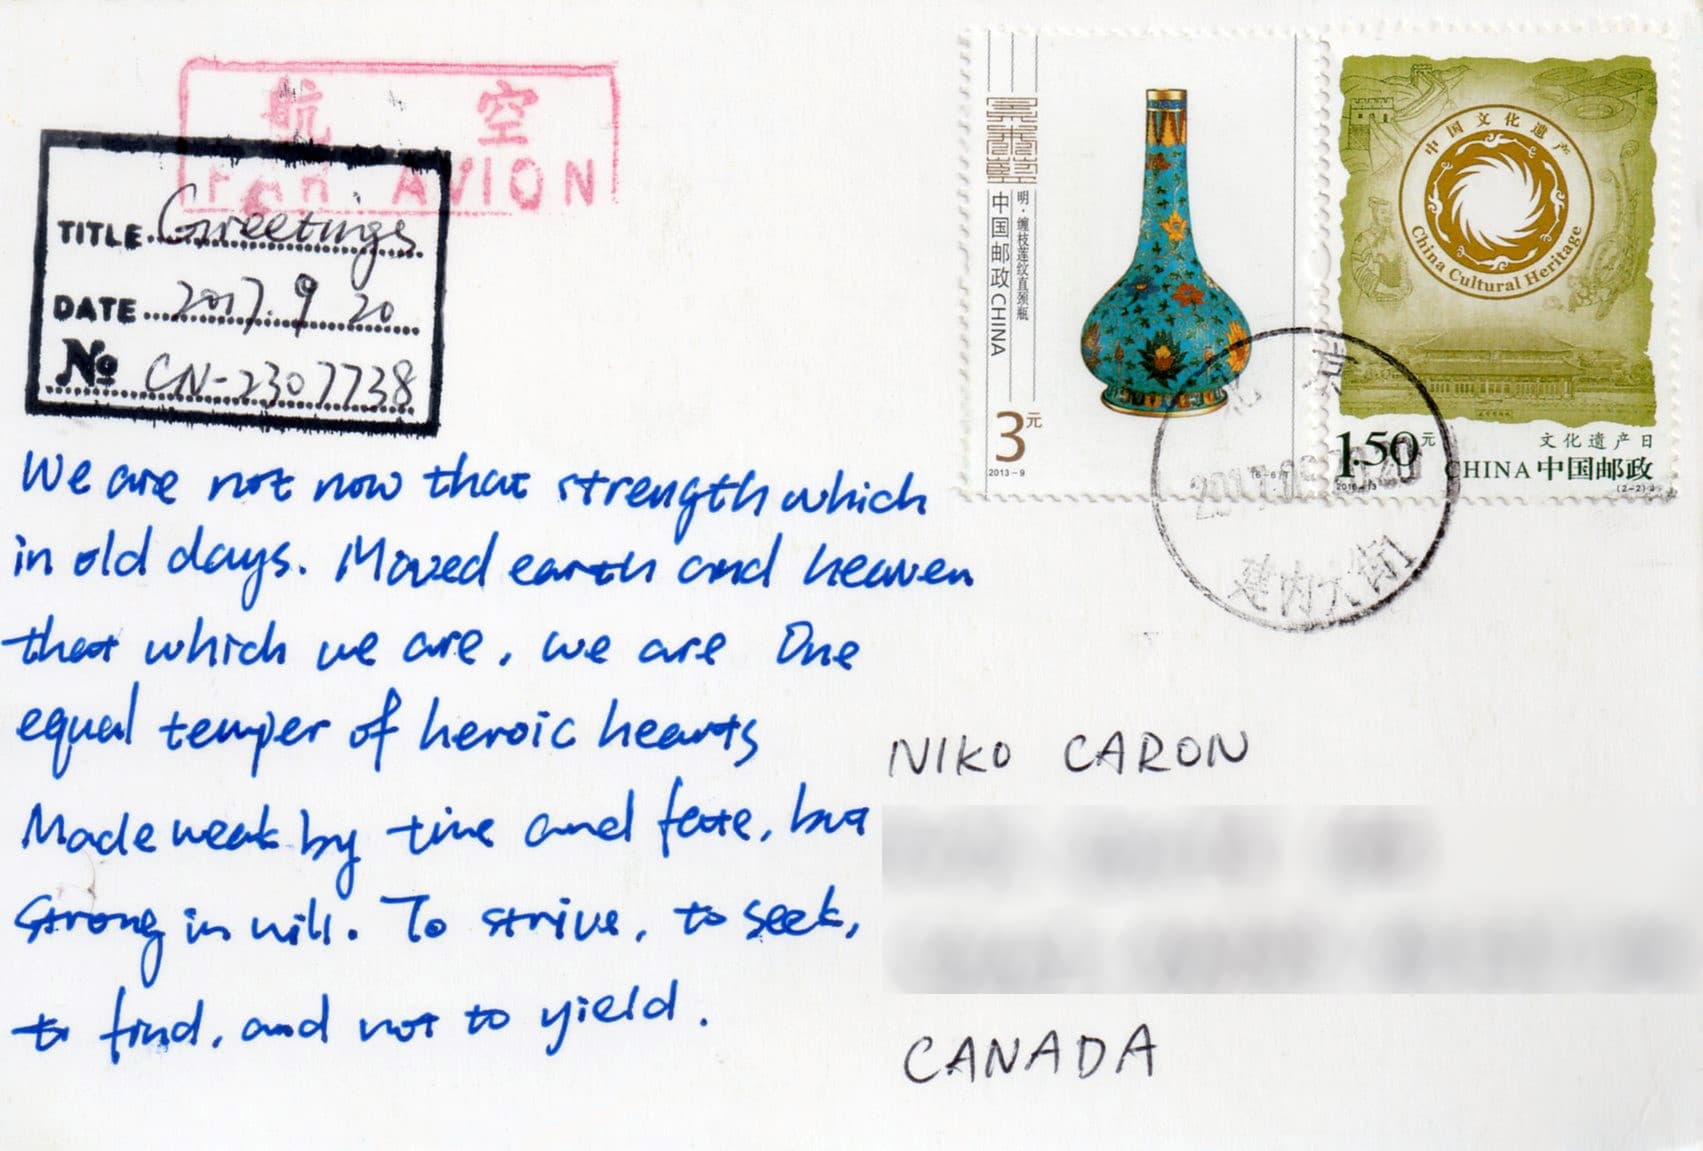 航 空
PAR AVION
TITLE Greetings
DATE 2017. 9 20
No CN-2307738
景泰蓝
中国邮政 CHINA
明·缠枝莲纹直颈瓶
3元
2013-9
(6-6)T
中国文化遗产
China Cultural Heritage
1.50元
文化遗产日
CHINA 中国邮政
(2-2)
北 京
建内大街1
We are not now that strength which
in old days. Moved earth and heaven
that which we are, we are One
equal temper of heroic hearts
Made weak by time and fate, but
Strong in will. To strive, to seek,
to find, and not to yield.
NIKO CARON
CANADA